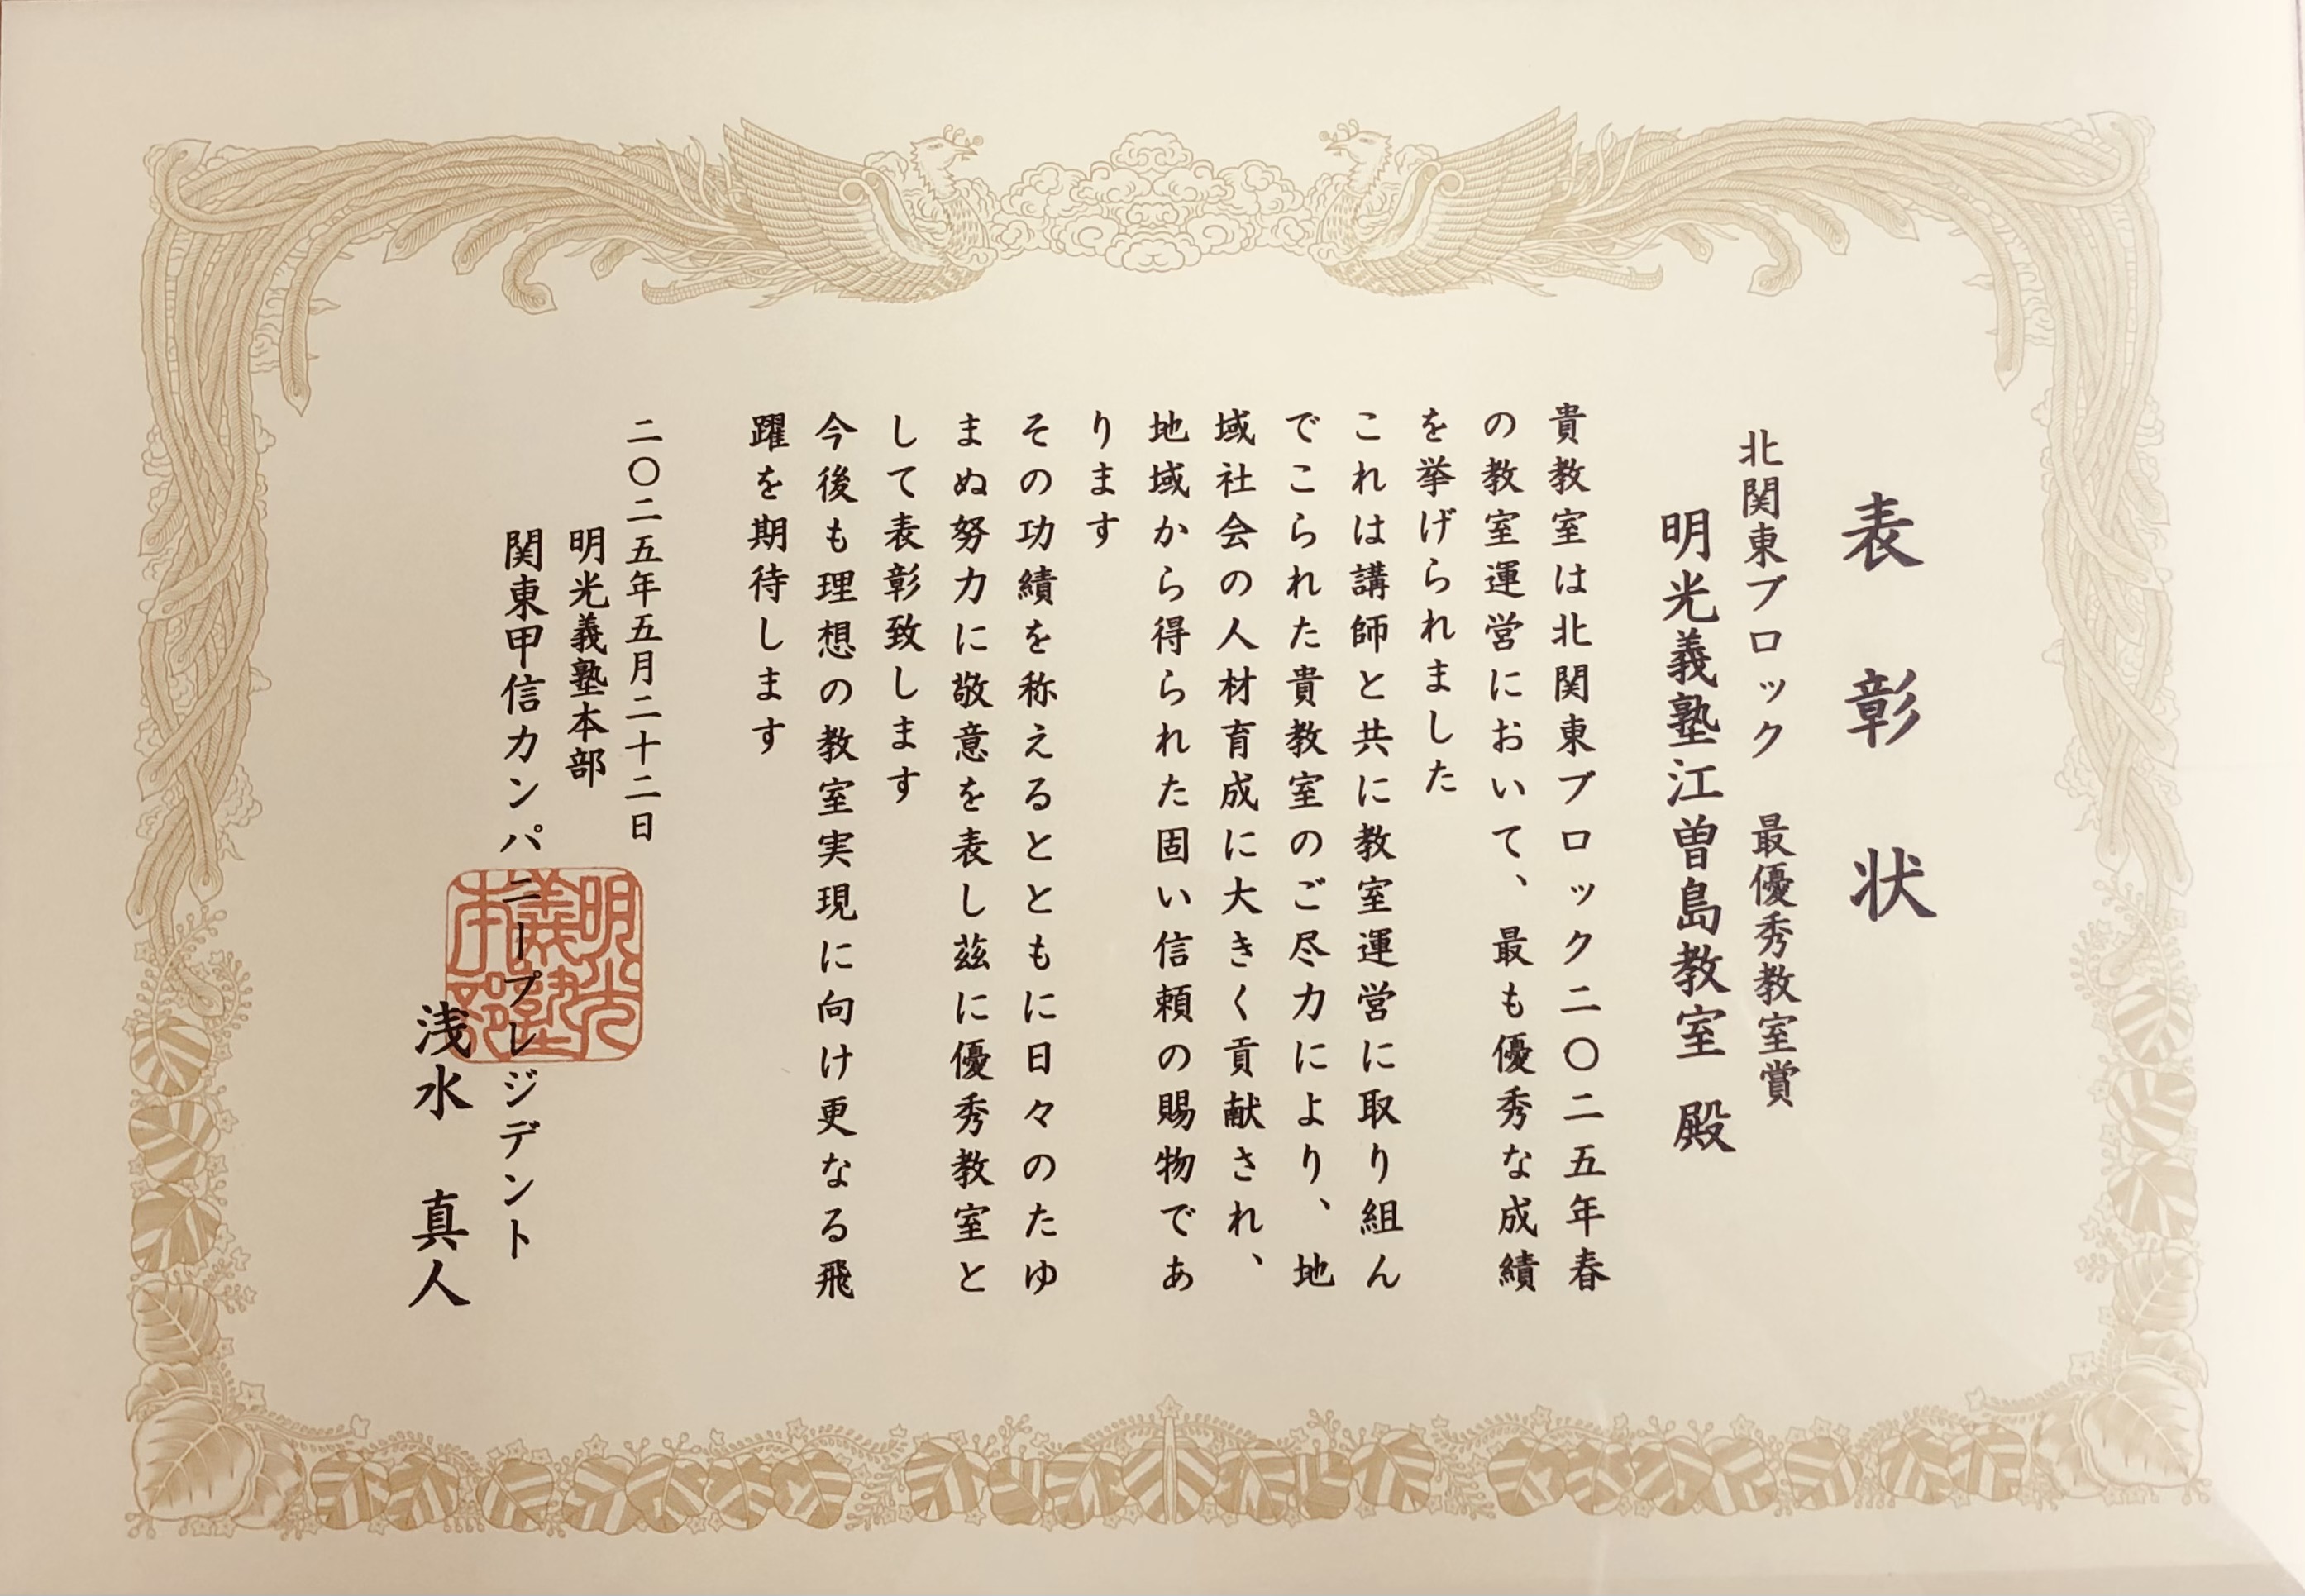 表彰状
北関東ブロック　最優秀教室賞
明光義塾江曽島教室　殿
貴教室は北関東ブロック二〇二五年春
の教室運営において、最も優秀な成績
を挙げられました
これは講師と共に教室運営に取り組ん
でこられた貴教室のご尽力により、地
域社会の人材育成に大きく貢献され、
地域から得られた固い信頼の賜物であ
ります
その功績を称えるとともに日々のたゆ
まぬ努力に敬意を表し茲に優秀教室と
して表彰致します
今後も理想の教室実現に向け更なる飛
躍を期待します
二〇二五年五月二十二日
明光義塾本部
関東甲信カンパニープレジデント
浅水　真人
明光
義塾
本部